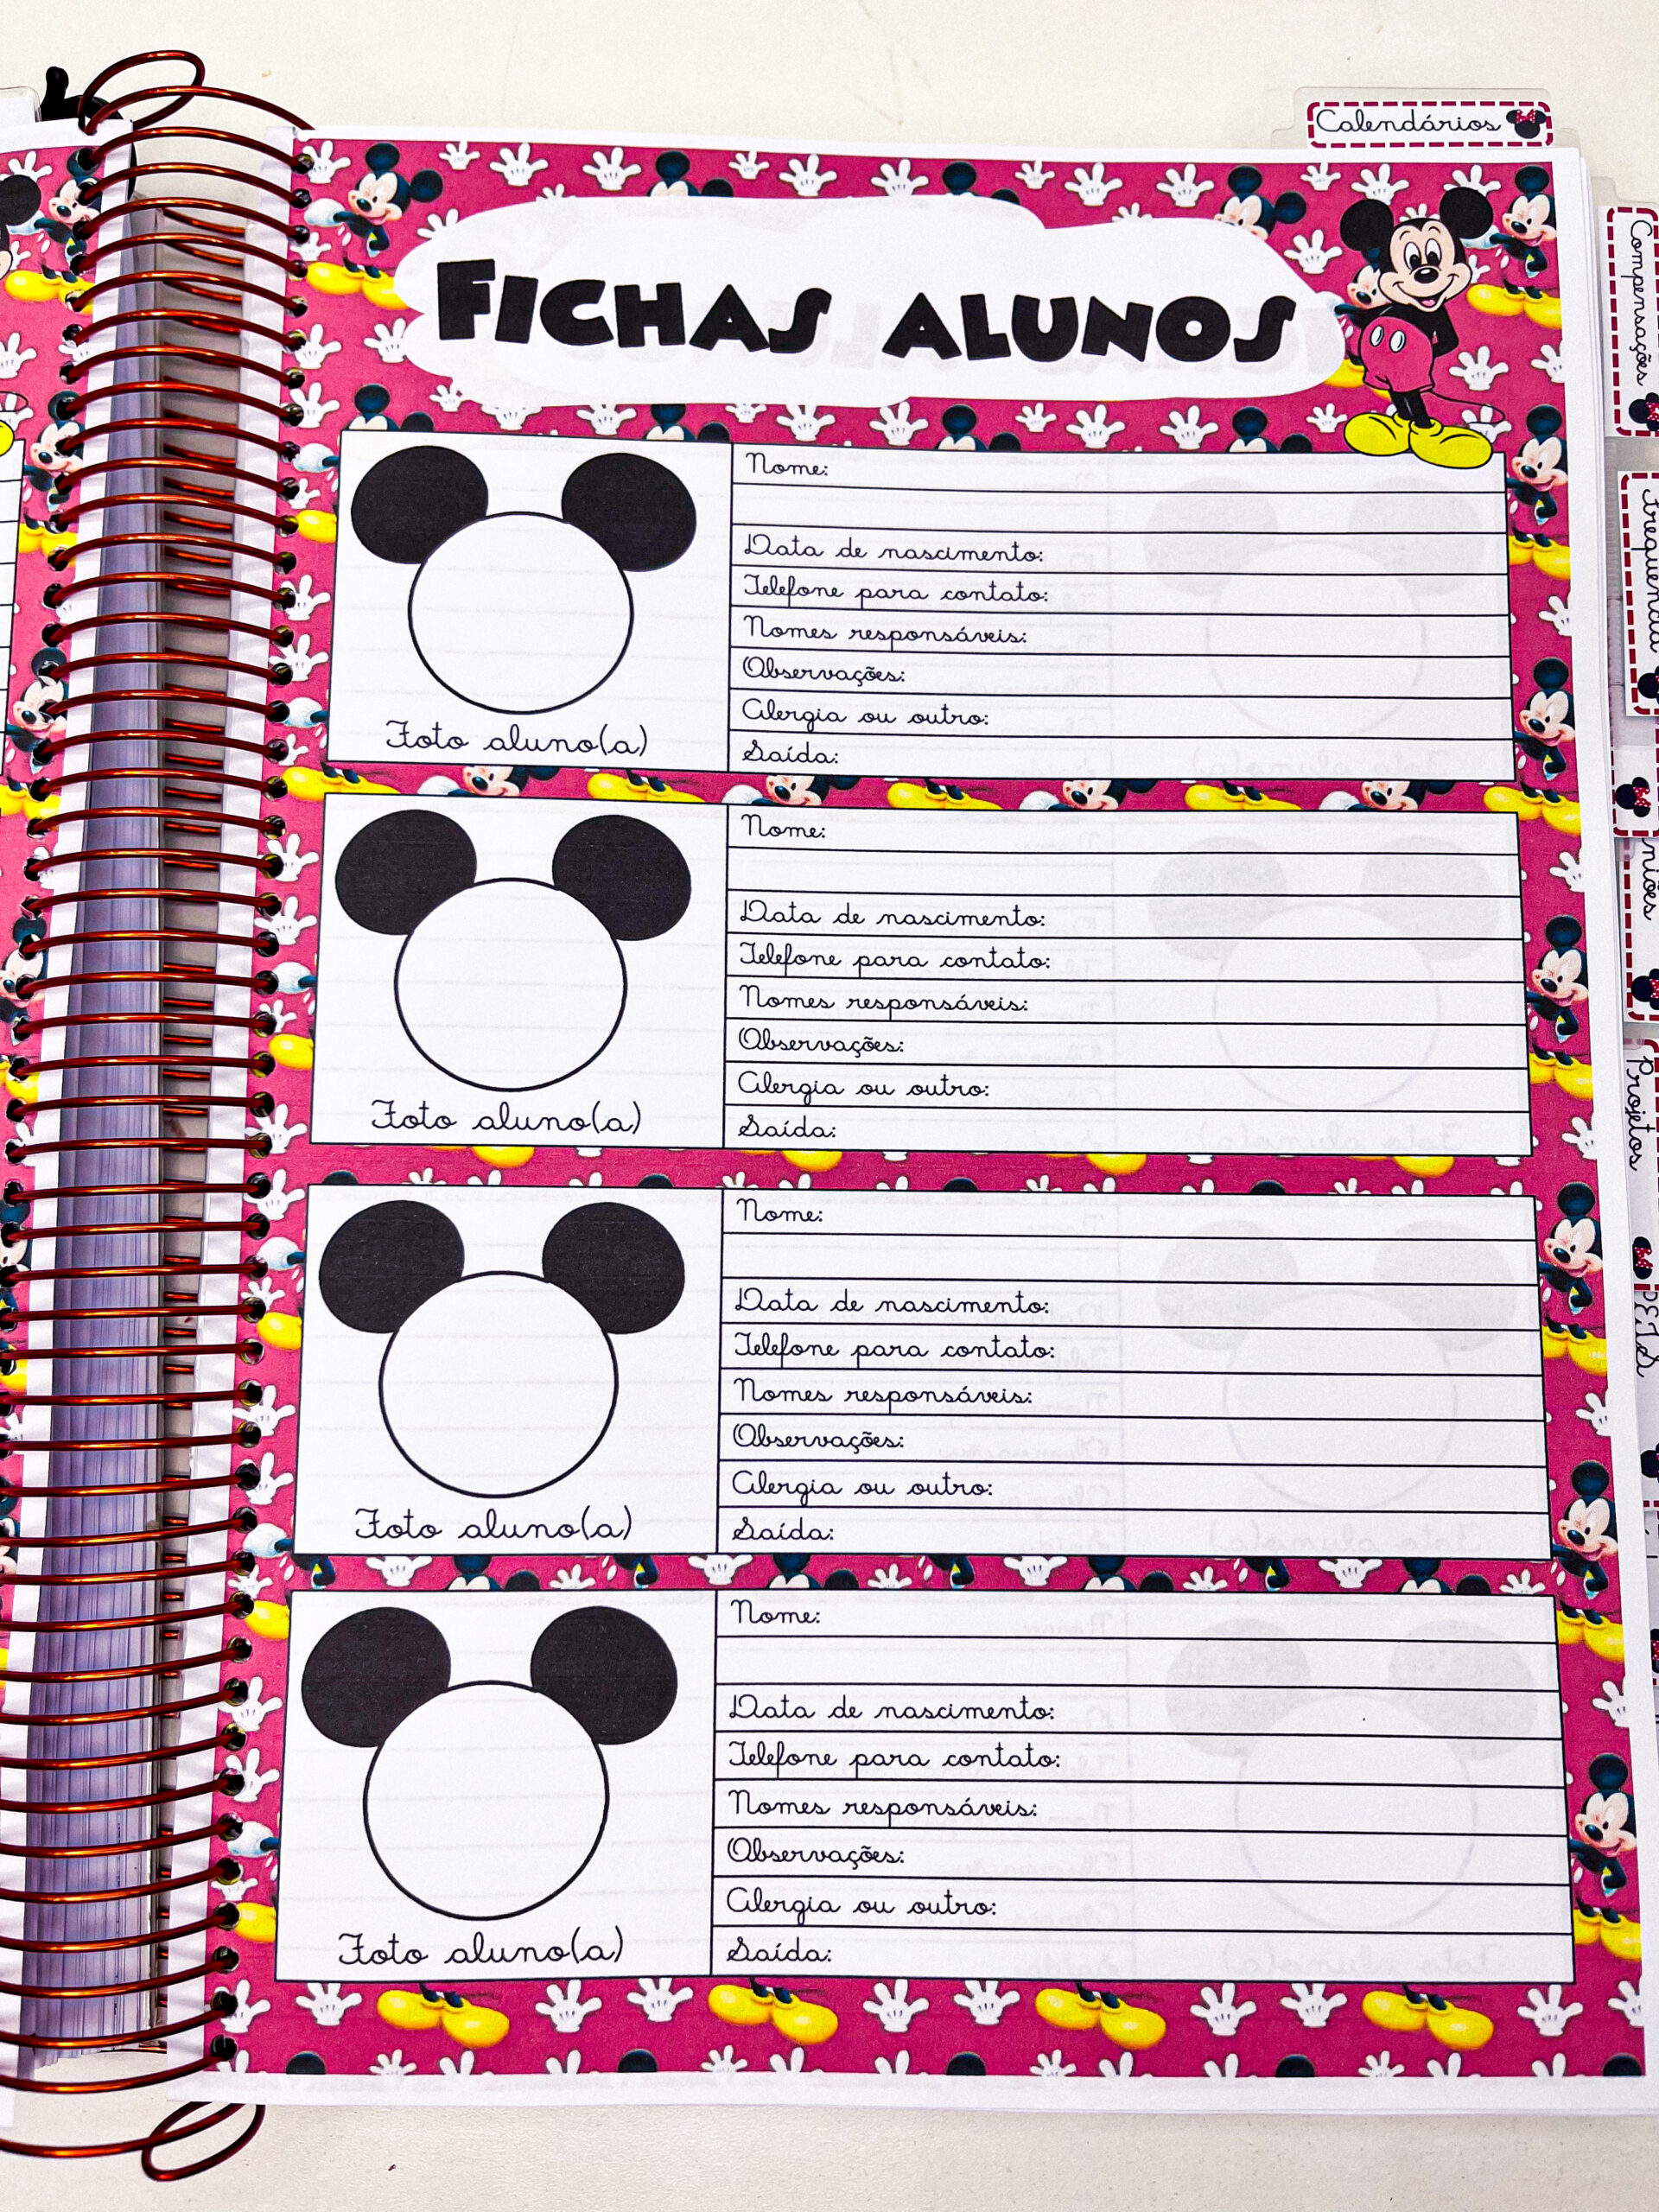 Calendários
FICHAS ALUNOS
Nome:
Data de nascimento:
Telefone para contato:
Nomes responsáveis:
Observações:
Alergia ou outro:
Saída:
Foto aluno(a)
Nome:
Data de nascimento:
Telefone para contato:
Nomes responsáveis:
Observações:
Alergia ou outro:
Saída:
Foto aluno(a)
Nome:
Data de nascimento:
Telefone para contato:
Nomes responsáveis:
Observações:
Alergia ou outro:
Saída:
Foto aluno(a)
Nome:
Data de nascimento:
Telefone para contato:
Nomes responsáveis:
Observações:
Alergia ou outro:
Saída:
Foto aluno(a)
Compensações
Frequência
niões
Projetos